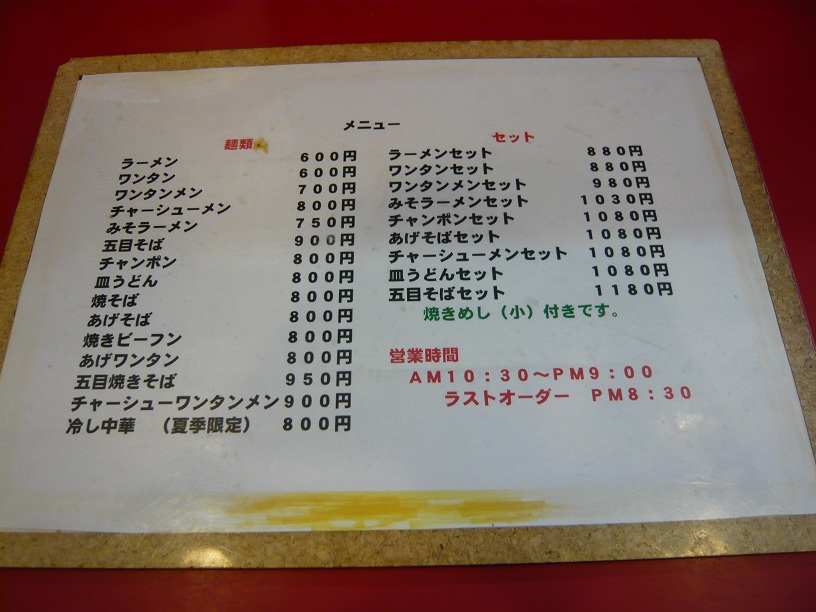 メニュー
麺類
ラーメン 600円
ワンタン 600円
ワンタンメン 700円
チャーシューメン 800円
みそラーメン 750円
五目そば 900円
チャンポン 800円
皿うどん 800円
焼そば 800円
あげそば 800円
焼きビーフン 800円
あげワンタン 800円
五目焼きそば 950円
チャーシューワンタンメン 900円
冷し中華 (夏季限定) 800円
セット
ラーメンセット 880円
ワンタンセット 880円
ワンタンメンセット 980円
みそラーメンセット 1030円
チャンポンセット 1080円
あげそばセット 1080円
チャーシューメンセット 1080円
皿うどんセット 1080円
五目そばセット 1180円
焼きめし(小)付きです。
営業時間
AM10:30~PM9:00
ラストオーダー PM8:30